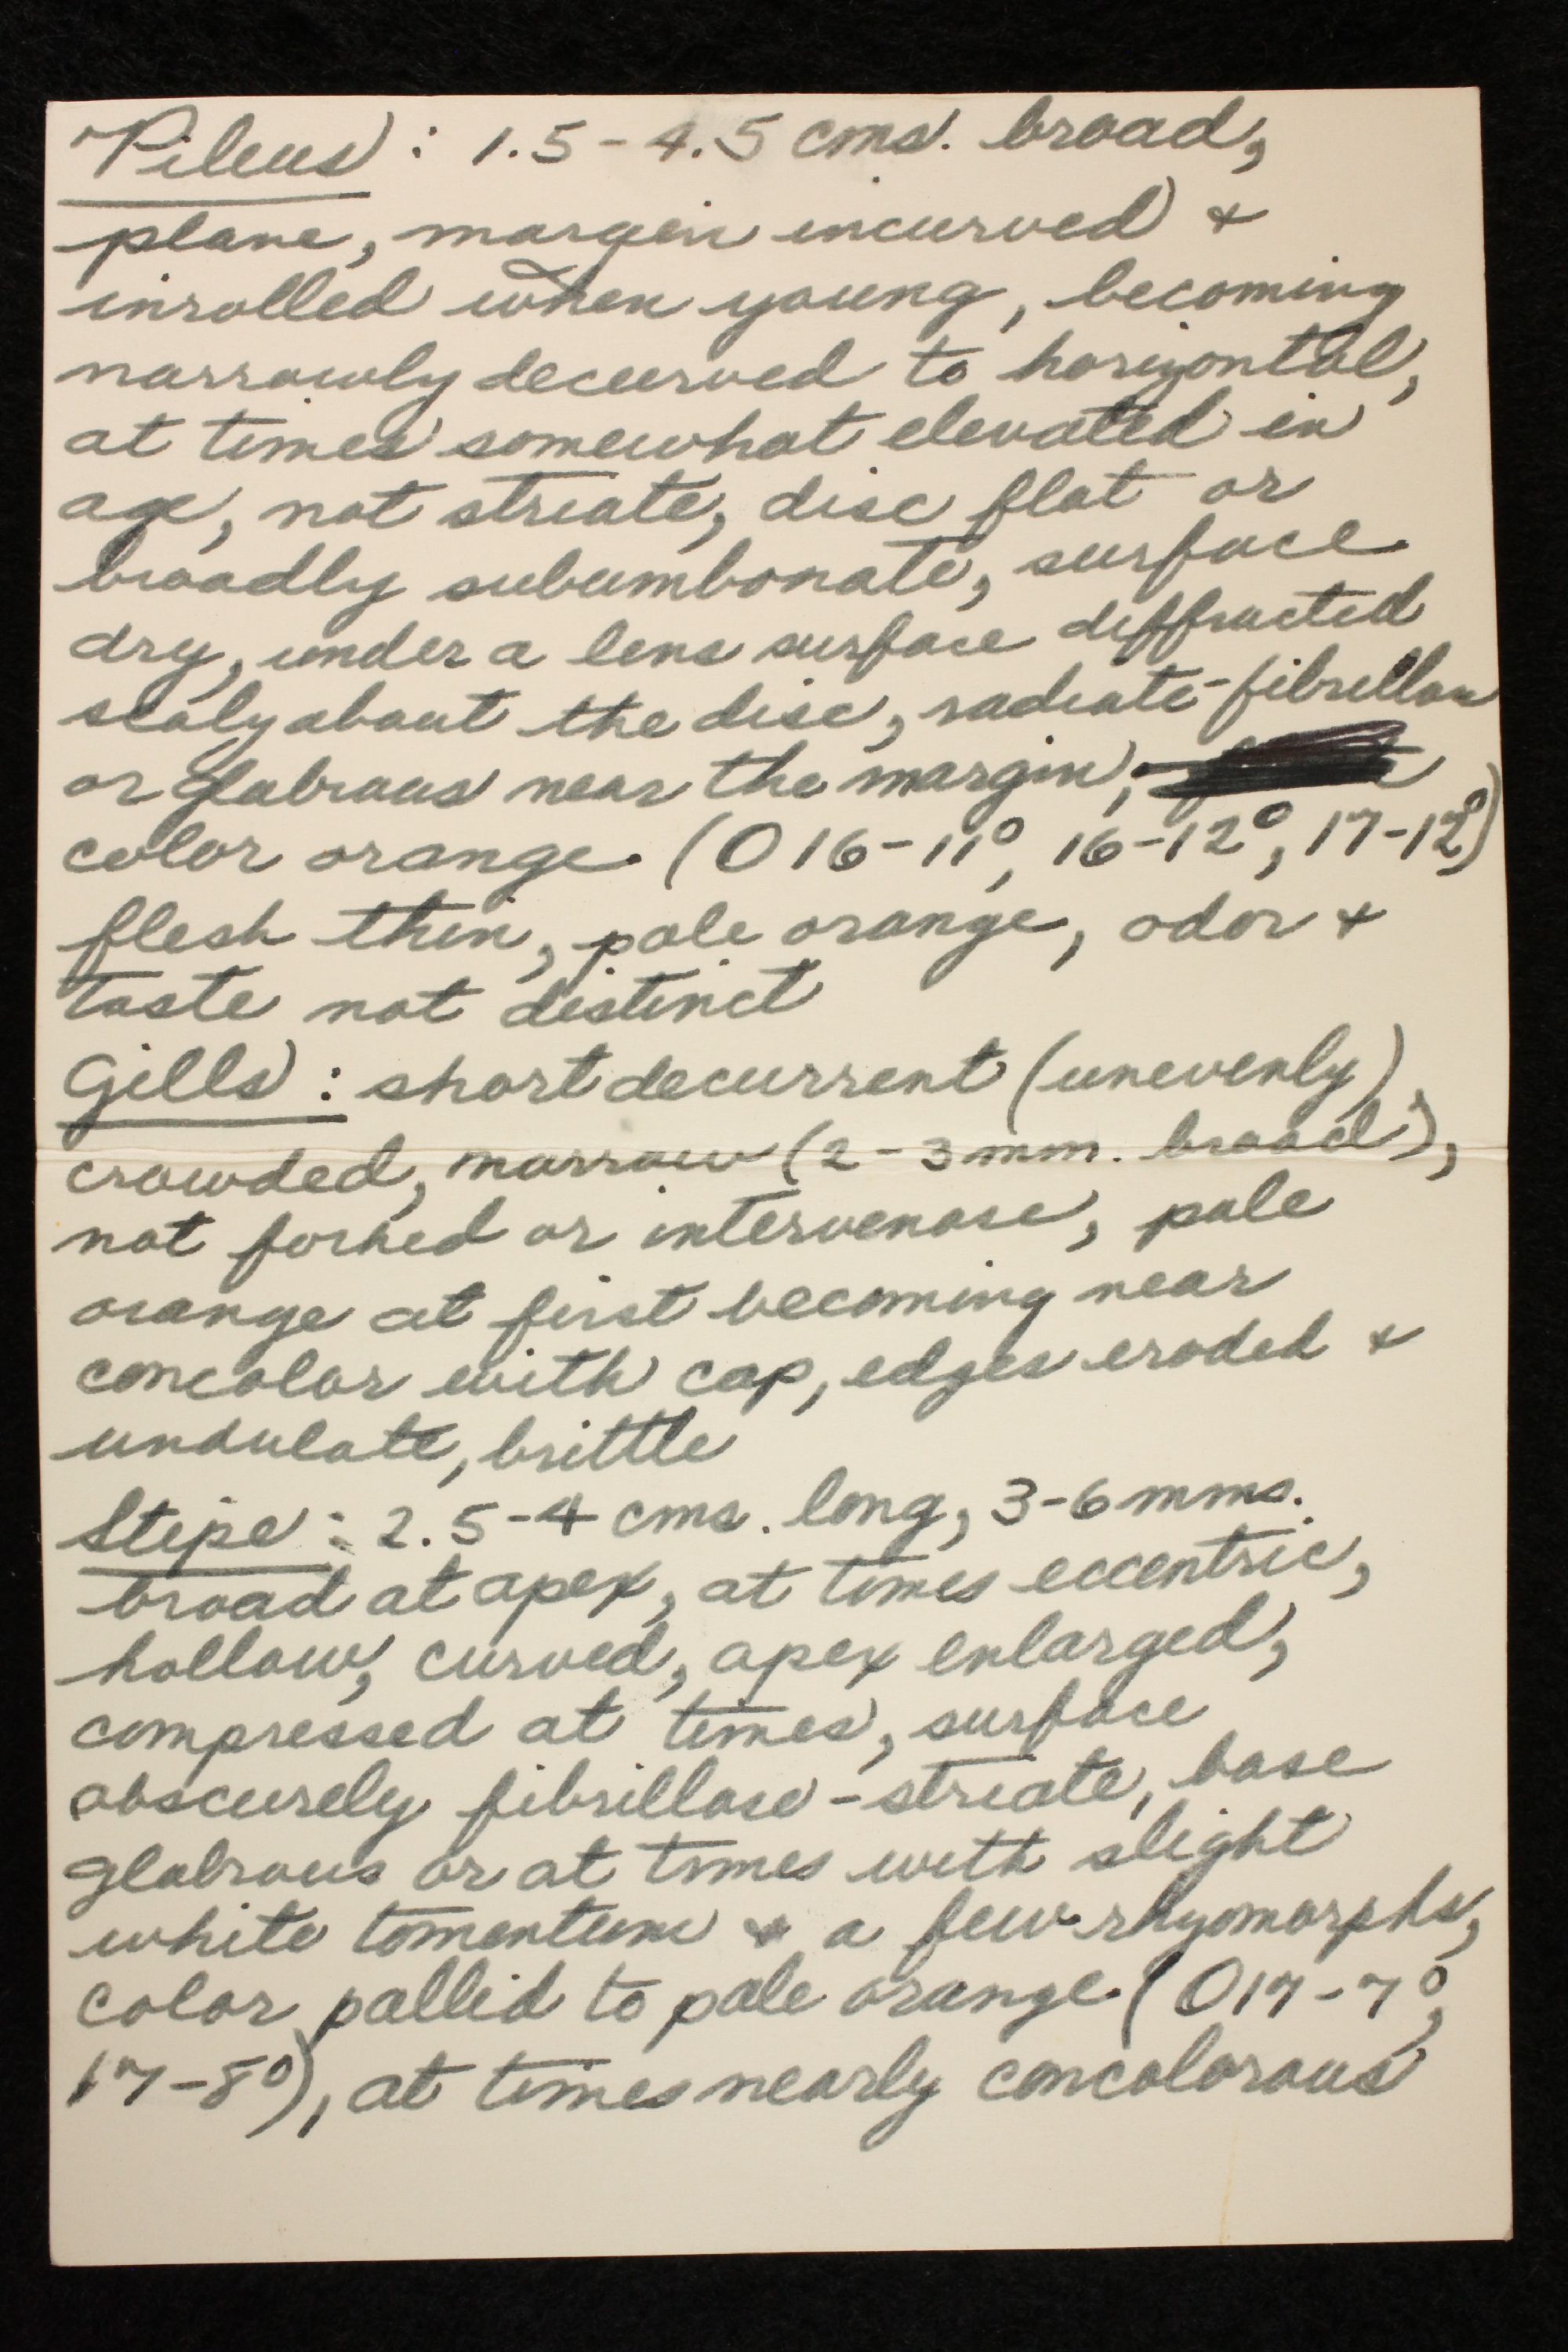 Pileus: 1.5-4.5 cms. broad,
plane, margin incurved &
inrolled when young, becoming
narrowly decurved to horizontal,
at times somewhat elevated in
age, not striate, disc flat or
broadly subumbonate, surface
dry, under a lens surface diffracted
scaly about the disc, radiate-fibrillose
or glabrous near the margin,
color orange. (O 16-11°, 16-12°, 17-12°)
flesh thin, pale orange, odor &
taste not distinct
Gills: short decurrent (unevenly)
crowded, narrow (2-3 mm. broad),
not forked or intervenose, pale
orange at first becoming near
concolor with cap, edges eroded &
undulate, brittle
Stipe: 2.5-4 cms. long, 3-6 mms.
broad at apex, at times eccentric,
hollow, curved, apex enlarged,
compressed at times, surface
obscurely fibrillose-striate, base
glabrous or at times with slight
white tomentum & a few rhyomorphs,
color pallid to pale orange (O17-7°,
17-8°), at times nearly concolorous